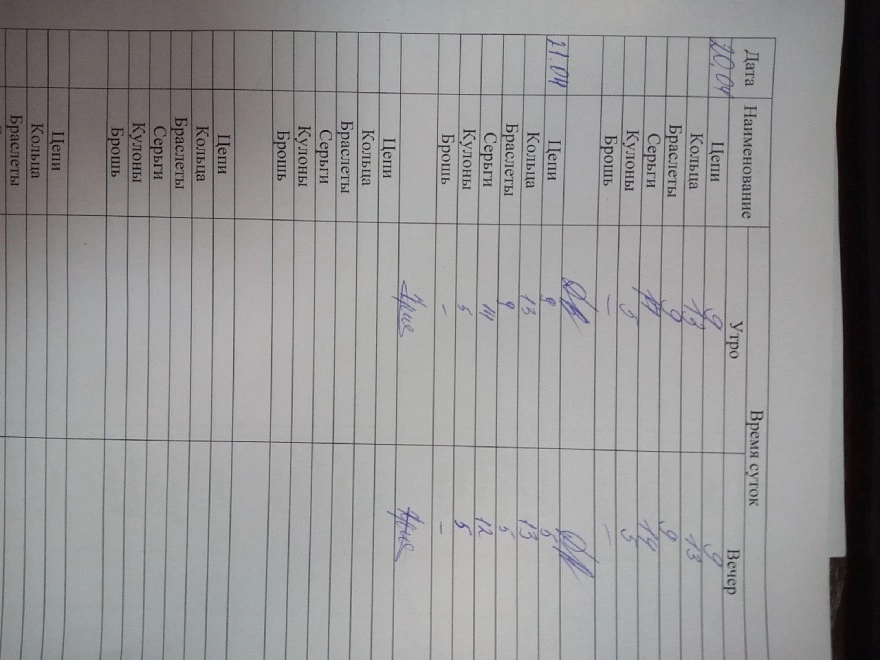 Дата Наименование Время суток
Утро Вечер
20.04 Цепи 9 9
Кольца 13 13
Браслеты 9 9
Серьги 14 14
Кулоны 5 5
Брошь — —
21.04 Цепи 9
Кольца 13 13
Браслеты 9 5
Серьги 14 12
Кулоны 5 5
Брошь - -
Цепи
Кольца
Браслеты
Серьги
Кулоны
Брошь
Цепи
Кольца
Браслеты
Серьги
Кулоны
Брошь
Цепи
Кольца
Браслеты